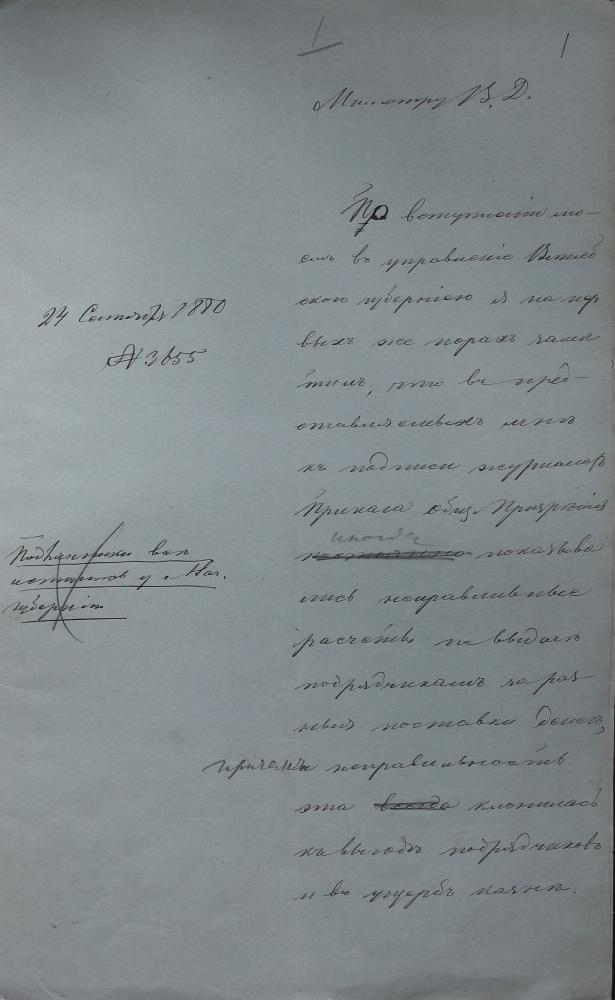 1
1
Министру В. Д.
По вступленiи мо-
емъ въ управленiе Витеб
скою губернiею я на пер
выхъ же порахъ замѣ
тилъ, что въ пред-
ставляемыхъ мнѣ
къ подписи журналахъ
Приказа Общ. Призрѣнiя
иногда
показыва
лись неправильные
расчеты на выдачу
подрядчикамъ за раз
ныя поставки денегъ,
причемъ неправильность
эта всегда клонилась
къ выгодѣ подрядчиковъ
и въ ущербъ казнѣ.
24 Сентября 1880
№ 3655
Подлинники
у г. Нач.
губернiи